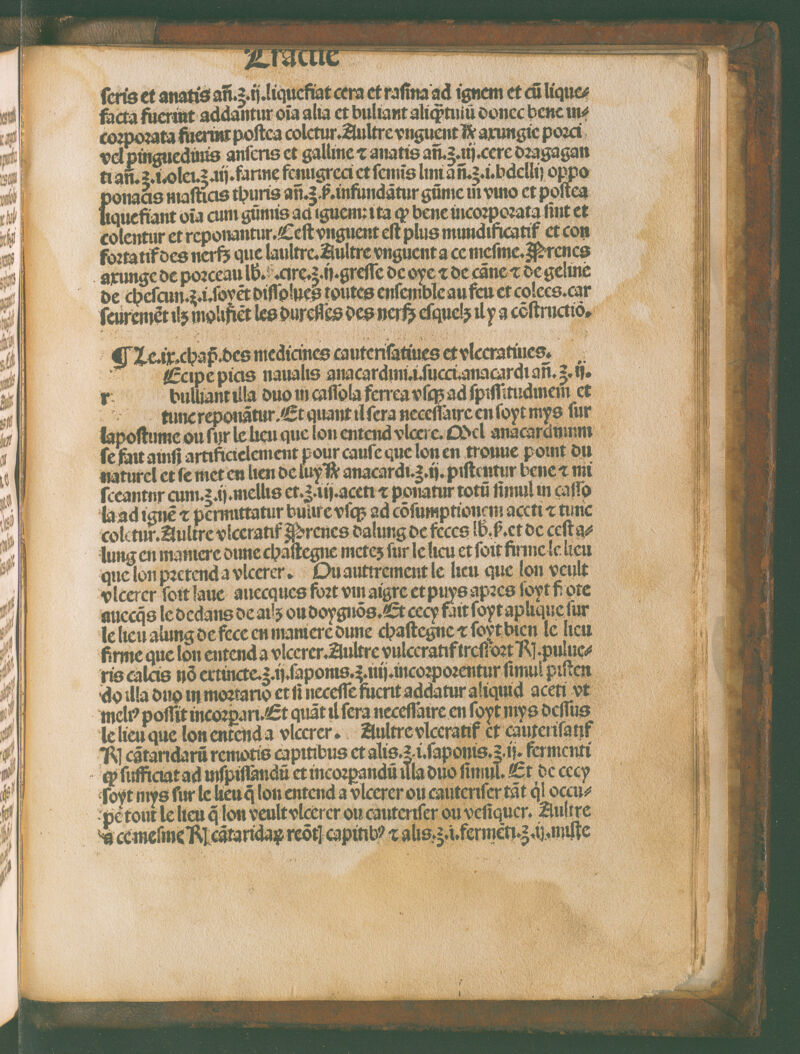 Tractie
ſeris et anatis añ.ʒ.ij.liquefiat cera et raſina ad ignem et cū lique⸗
facta fuerint addantur oīa alia et buliant aliq̄ntulū donec bene in⸗
coꝛpoꝛata fuerint poſtea coletur.Aultre vnguent ℞ axungie poꝛci
vel pinguedinis anſeris et galline ⁊ anatis añ.ʒ.iij.cere dꝛagagan
ti añ.ʒ.i.olei.ʒ.iij.farine fenugreci et ſemīs lini añ.ʒ.i.bdellij oppo
ponacis maſticis thuris añ.ʒ.ß.infundātur gūme in vino et poſtea
liquefiant oīa cum gūmis ad ignem: ita ꝙ bene incoꝛpoꝛata ſint et
colentur et reponantur.Ceſt vnguent eſt plus mundificatif et con
foꝛtatif des nerfz que laultre.Aultre vnguent a ce meſme.Prenes
axunge de poꝛceau lb. .cire.ʒ.ij.greſſe de oye ⁊ de cāne ⁊ de geline
de cheſcun.ʒ.i.ſoyēt diſſolues toutes enſemble au feu et colees.car
ſeuremēt ilz moliſiēt les dureſſes des nerfz eſquelz il y a cōſtructiō.
¶ Le.ix.chap̄.des medicines cauteriſatiues et vlceratiues.
r Ecipe picis naualis anacardini.i.ſucci.anacardi añ.ʒ.ij.
bulliant illa duo in caſſola ferrea vſqꝫ ad ſpiſſitudinem et
tunc reponātur.Et quant il ſera neceſſaire en ſoyt mys ſur
lapoſtume ou ſur le lieu que lon entend vlcere. Mel anacardinum
ſe fait ainſi artificielement pour cauſe que lon en trouue point du
naturel et ſe met en lieu de luy ℞ anacardi.ʒ.ij.piſtentur bene ⁊ mi
ſceantur cum.ʒ.ij.mellis et.ʒ.iij.aceti ⁊ ponatur totū ſimul in caſſo
la ad ignē ⁊ permittatur bulire vſqꝫ ad cōſumptionem aceti ⁊ tunc
coletur.Aultre vlceratif Prenes dalung de feces lb.ß.et de ceſt a⸗
lung en maniere dune chaſtegne metez ſur le lieu et ſoit firme le lieu
que lon pꝛetend a vlcerer. Ou auttrement le lieu que lon veult
vlcerer ſoit laue auecques foꝛt vin aigre et puys apꝛes ſoyt frote
auecq̄s le dedans de ailz ou doygnōs.Et cecy fait ſoyt aplique ſur
le lieu alung de fece en maniere dune chaſtegne ⁊ ſoyt bien le lieu
firme que lon entend a vlcerer.Aultre vulceratif treſfoꝛt ℞.pulue⸗
ris calcis nō extincte.ʒ.ij.ſaponis.ʒ.iiij.incoꝛpoꝛentur ſimul piſten
do illa duo in moꝛtario et ſi neceſſe fuerit addatur aliquid aceti vt
meliꝰ poſſit incoꝛpari.Et quāt il ſera neceſſaire en ſoyt mys deſſus
le lieu que lon entend a vlcerer. Aultre vlceratif et cauteriſatif
℞ cātaridarū remotis capitibus et alis.ʒ.i.ſaponis.ʒ.ij. fermenti
ꝙ ſufficiat ad inſpiſſandū et incoꝛpandū illa duo ſimul. Et de cecy
ſoyt mys ſur le lieu q̄ lon entend a vlcerer ou cauteriſer tāt q̄l occu⸗
pe tout le lieu q̄ lon veult vlcerer ou cauteriſer ou veſiquer. Aultre
a ce meſme ℞ cātaridaꝝ reōtꝭ capitibꝰ ⁊ alis.ʒ.i.fermēti.ʒ.ij.miſte